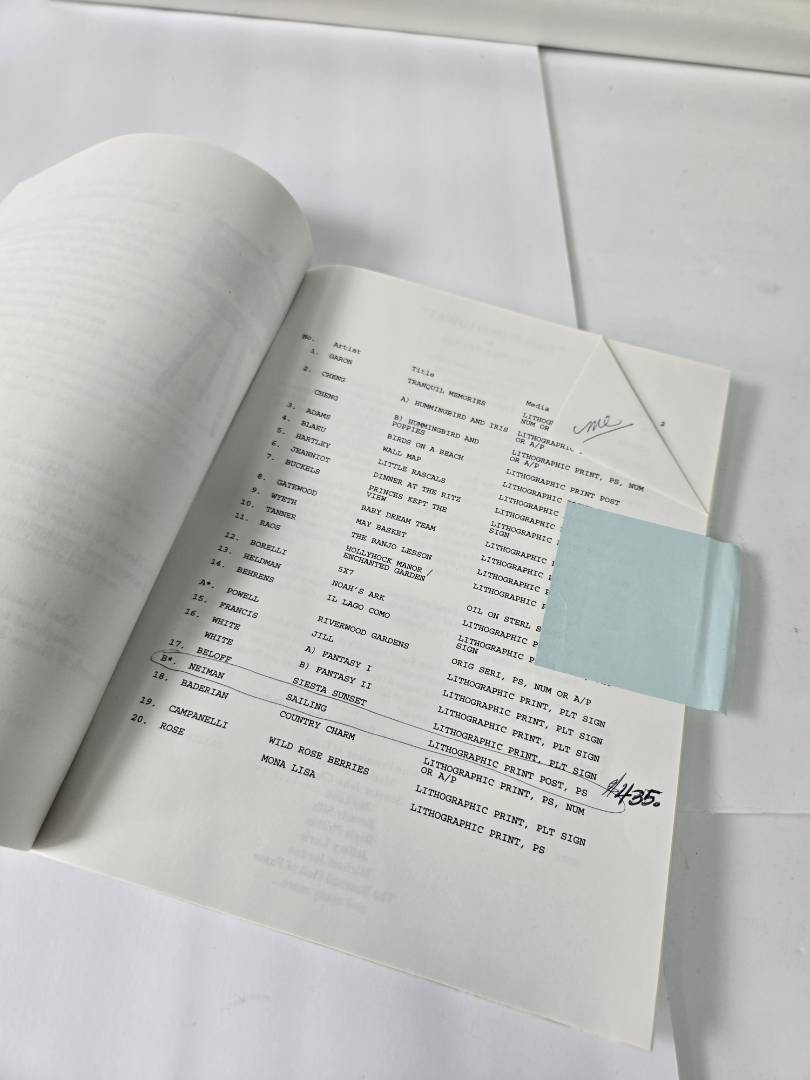 No. Artist Title Media 2
me
1. GARON TRANQUIL MEMORIES
NUM OR
2. CHENG A) HUMMINGBIRD AND IRIS LITHOGRAPHIC
OR A/P
CHENG B) HUMMINGBIRD AND LITHOGRAPHIC PRINT, PS, NUM
POPPIES OR A/P
3. ADAMS BIRDS ON A BEACH LITHOGRAPHIC PRINT POST
4. BLAEU WALL MAP LITHOGRAPHIC
5. HARTLEY LITTLE RASCALS LITHOGRAPHIC
6. JEANNIOT DINNER AT THE RITZ LITHOGRAPHIC
SIGN
7. BUCKELS PRINCES KEPT THE LITHOGRAPHIC
VIEW
8. GATEWOOD BABY DREAM TEAM LITHOGRAPHIC
9. WYETH MAY BASKET LITHOGRAPHIC
10. TANNER THE BANJO LESSON LITHOGRAPHIC
11. RAOS HOLLYHOCK MANOR /
ENCHANTED GARDEN
12. BORELLI 5X7 OIL ON STERL
13. HELDMAN NOAH'S ARK LITHOGRAPHIC
14. BEHRENS IL LAGO COMO LITHOGRAPHIC
SIGN
A*. POWELL RIVERWOOD GARDENS ORIG SERI, PS, NUM OR A/P
15. FRANCIS JILL LITHOGRAPHIC PRINT, PLT SIGN
16. WHITE A) FANTASY I LITHOGRAPHIC PRINT, PLT SIGN
WHITE B) FANTASY II LITHOGRAPHIC PRINT, PLT SIGN
17. BELOFF SIESTA SUNSET LITHOGRAPHIC PRINT, PLT SIGN
B*. NEIMAN SAILING LITHOGRAPHIC PRINT POST, PS $435.
18. BADERIAN COUNTRY CHARM LITHOGRAPHIC PRINT, PS, NUM
OR A/P
19. CAMPANELLI WILD ROSE BERRIES LITHOGRAPHIC PRINT, PLT SIGN
20. ROSE MONA LISA LITHOGRAPHIC PRINT, PS